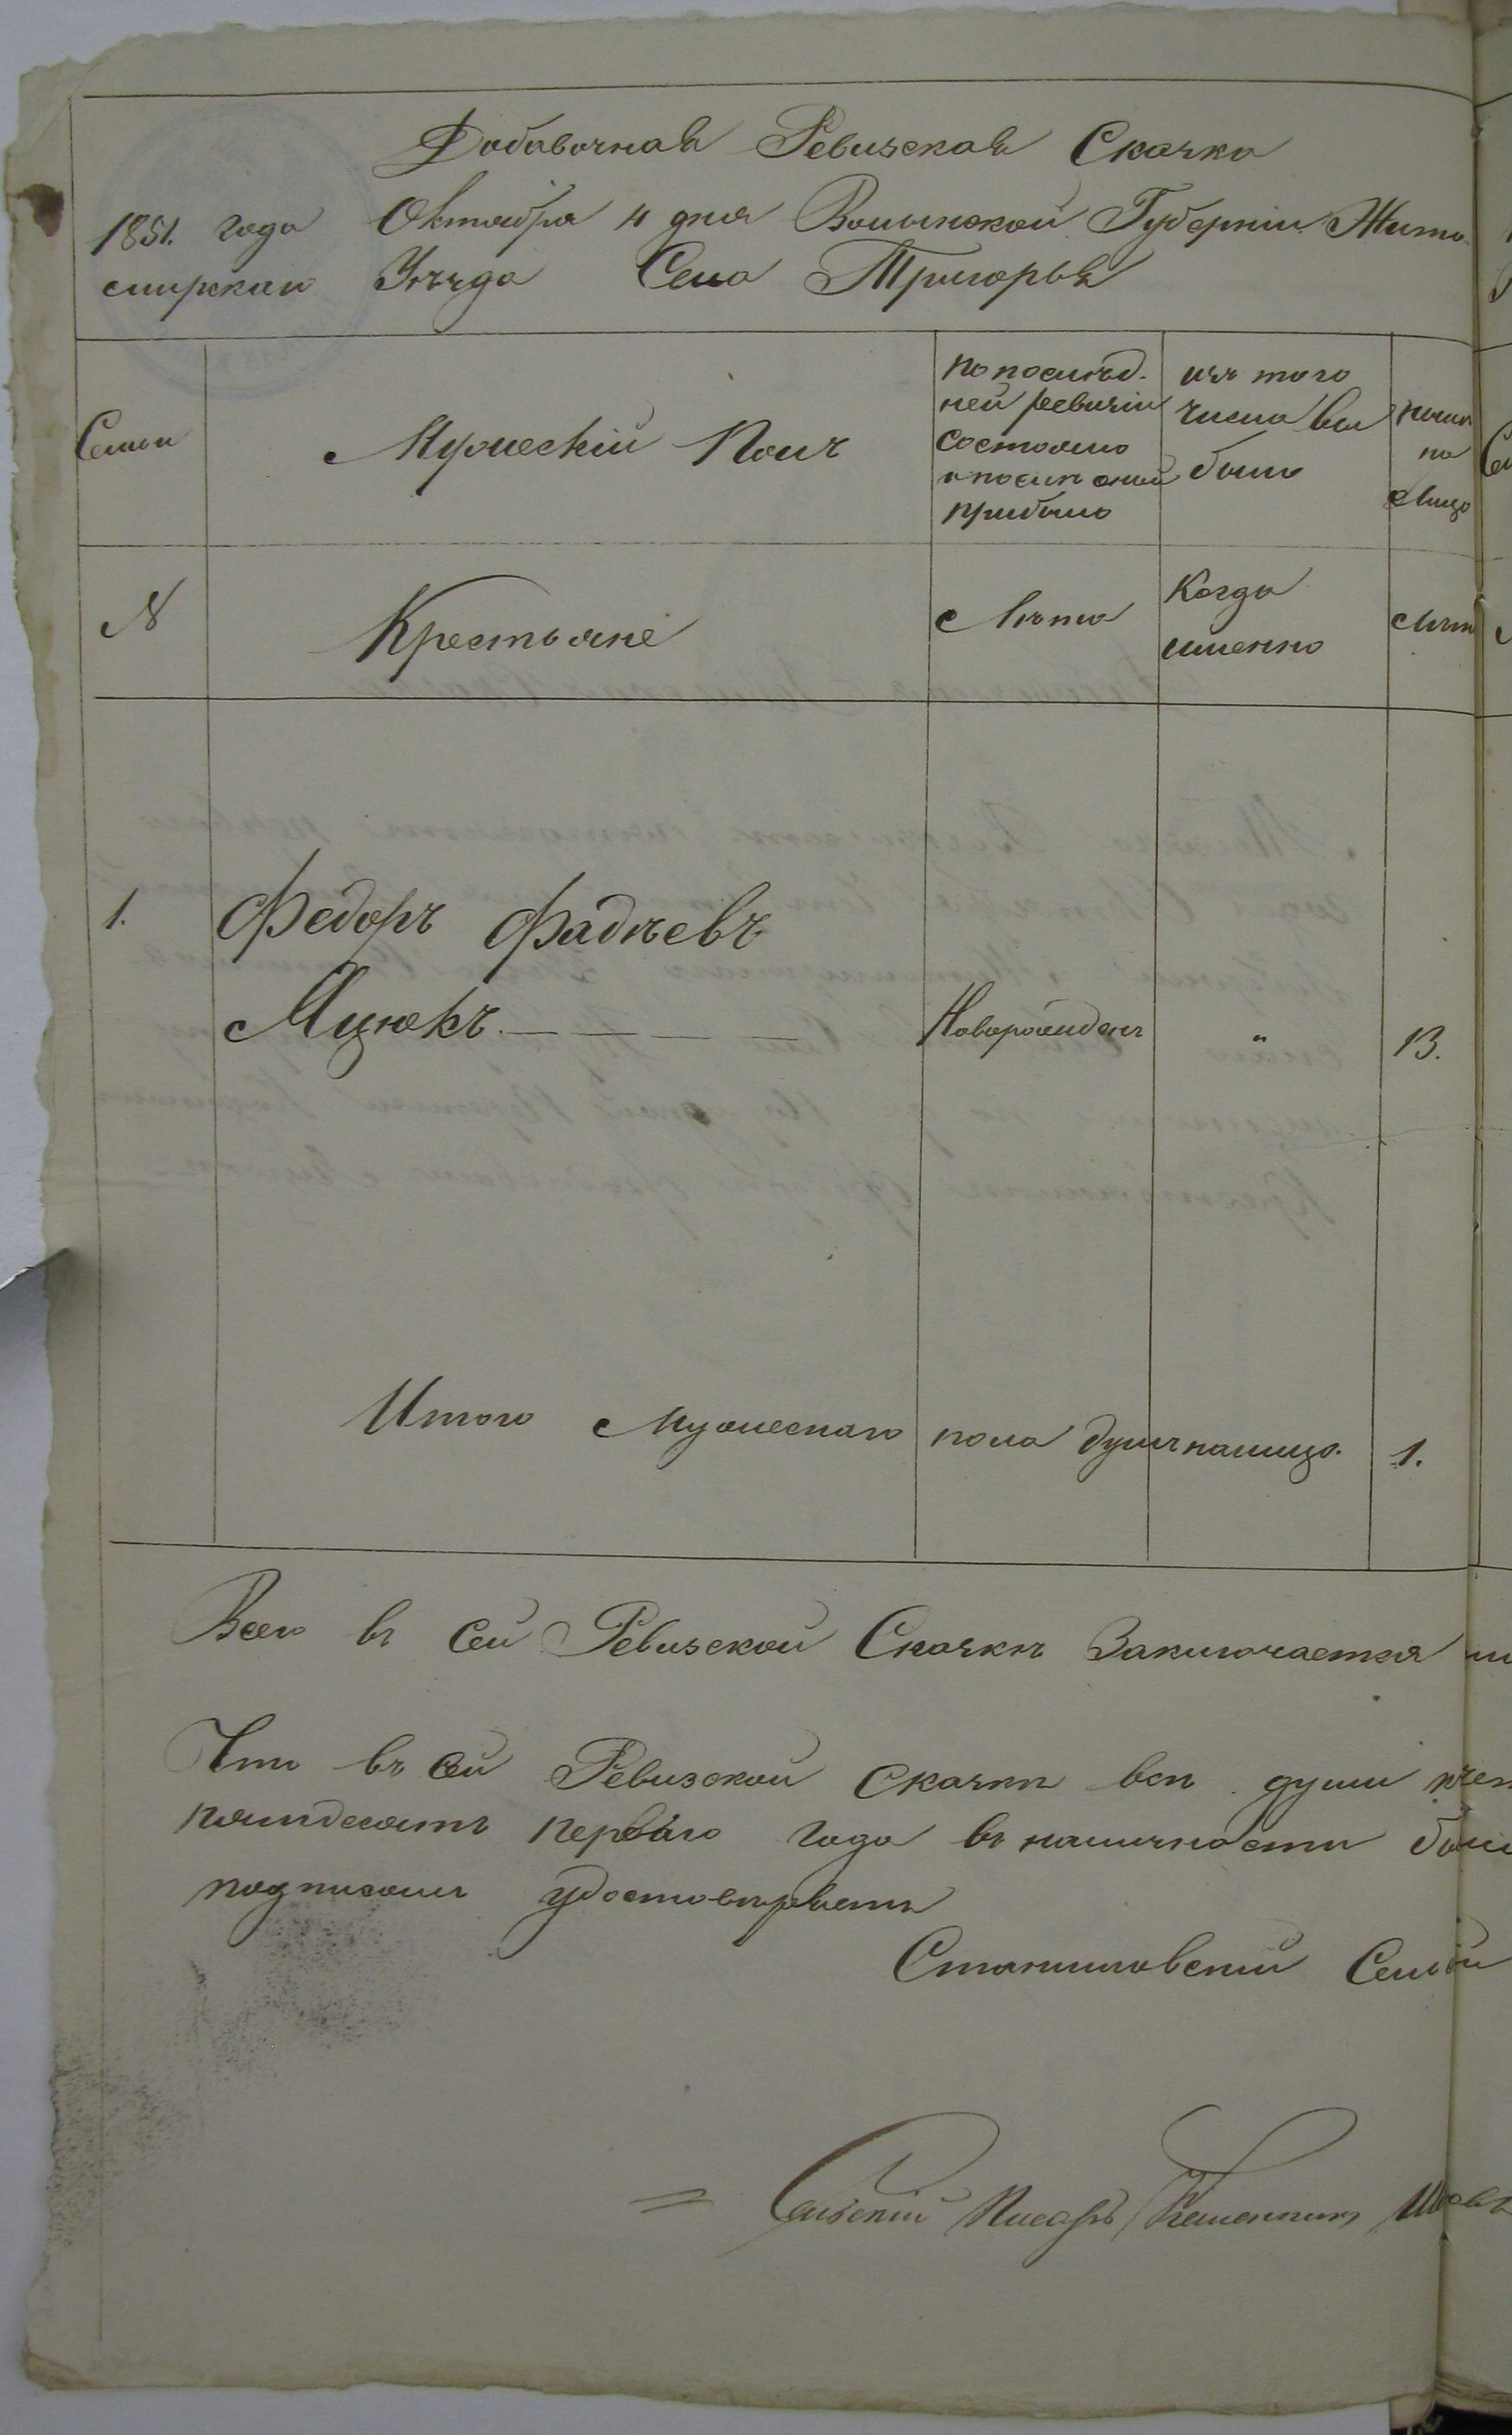 Добавочная Ревизская Сказка
1851. года Октября 4 дня Волынской Губерніи Жито-
мирскаго Уѣзда Села Тригорья
Семьи
Мужескій Полъ
по послѣд-
ней ревизіи
состояло
и послѣ оной
прибыло
изъ того
числа вы
было
нынѣ
на
лицо
N
Крестьяне
Лѣта
Когда
именно
Лѣта
1.
Федоръ Фадѣевъ
Мцюкъ
Новорожденъ
"
13.
Итого Мужескаго пола душъ налицо. 1.
Всего въ сей Ревизской Сказкѣ Заключается
Что въ сей Ревизской Сказкѣ всѣ души
пятьдесятъ перваго года въ наличности
подписомъ удостовѣряемъ
Станишовскій
Сельскій Писарь